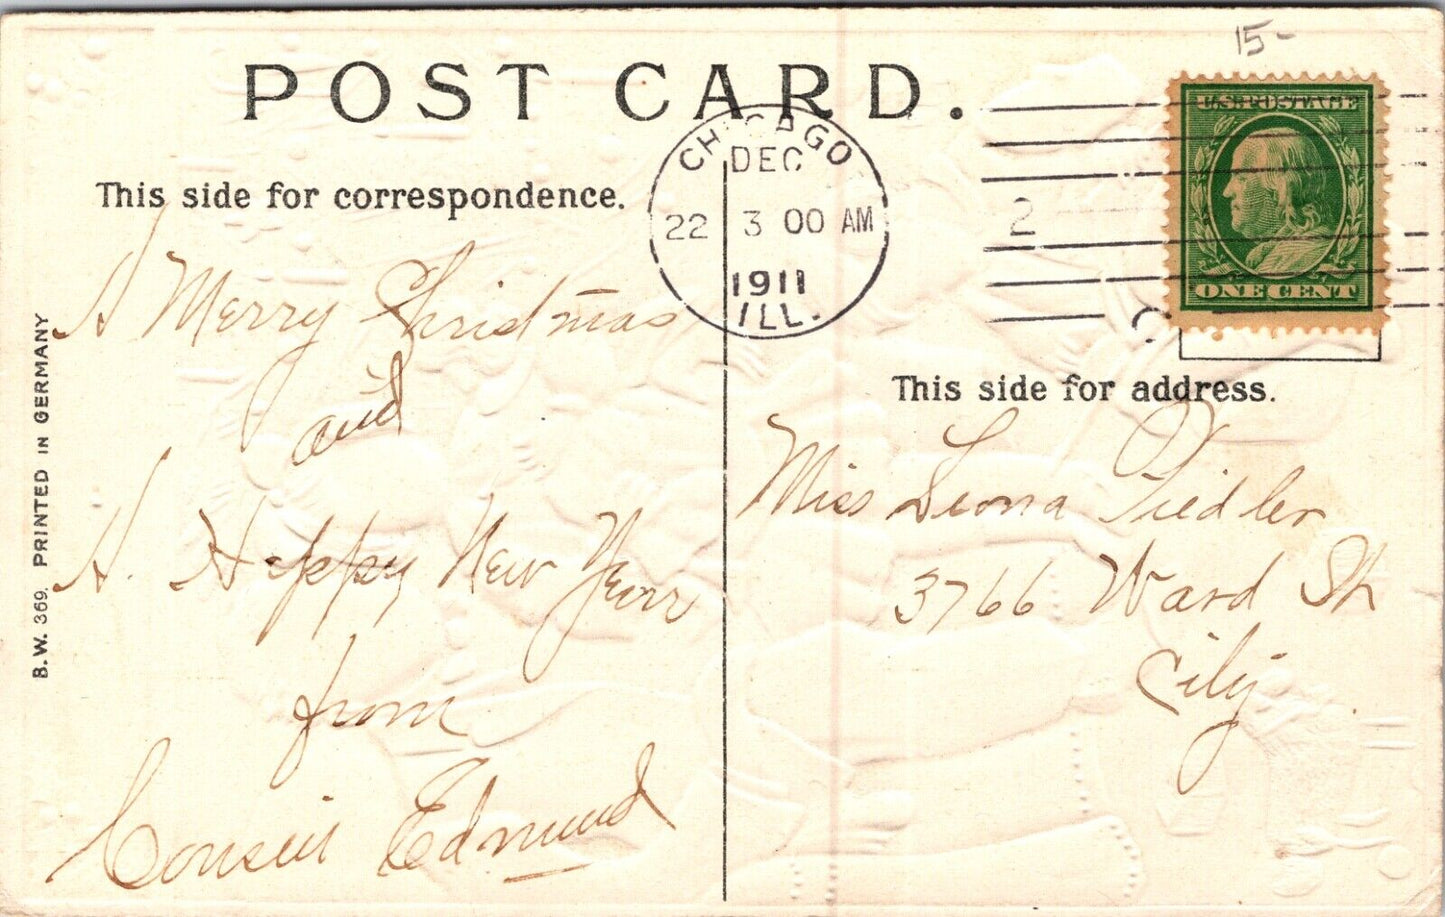 15-
POST CARD.
This side for correspondence.
CHICAGO
DEC
22 3 00 AM
1911
ILL.
2
U.S. POSTAGE
ONE CENT
A Merry Christmas
and
A. Happy New Year
from
Cousin Edmund
This side for address.
Miss Leona Fiedler
3766 Ward St
City
B.W. 369, PRINTED IN GERMANY